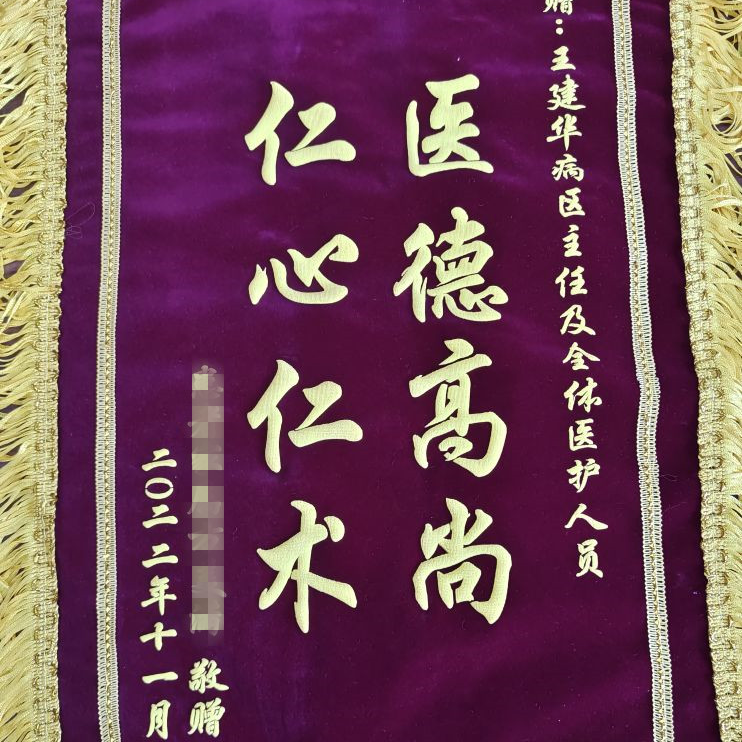 赠：王建华病区主任及全体医护人员
医德高尚
仁心仁术
敬赠
二〇二二年十一月